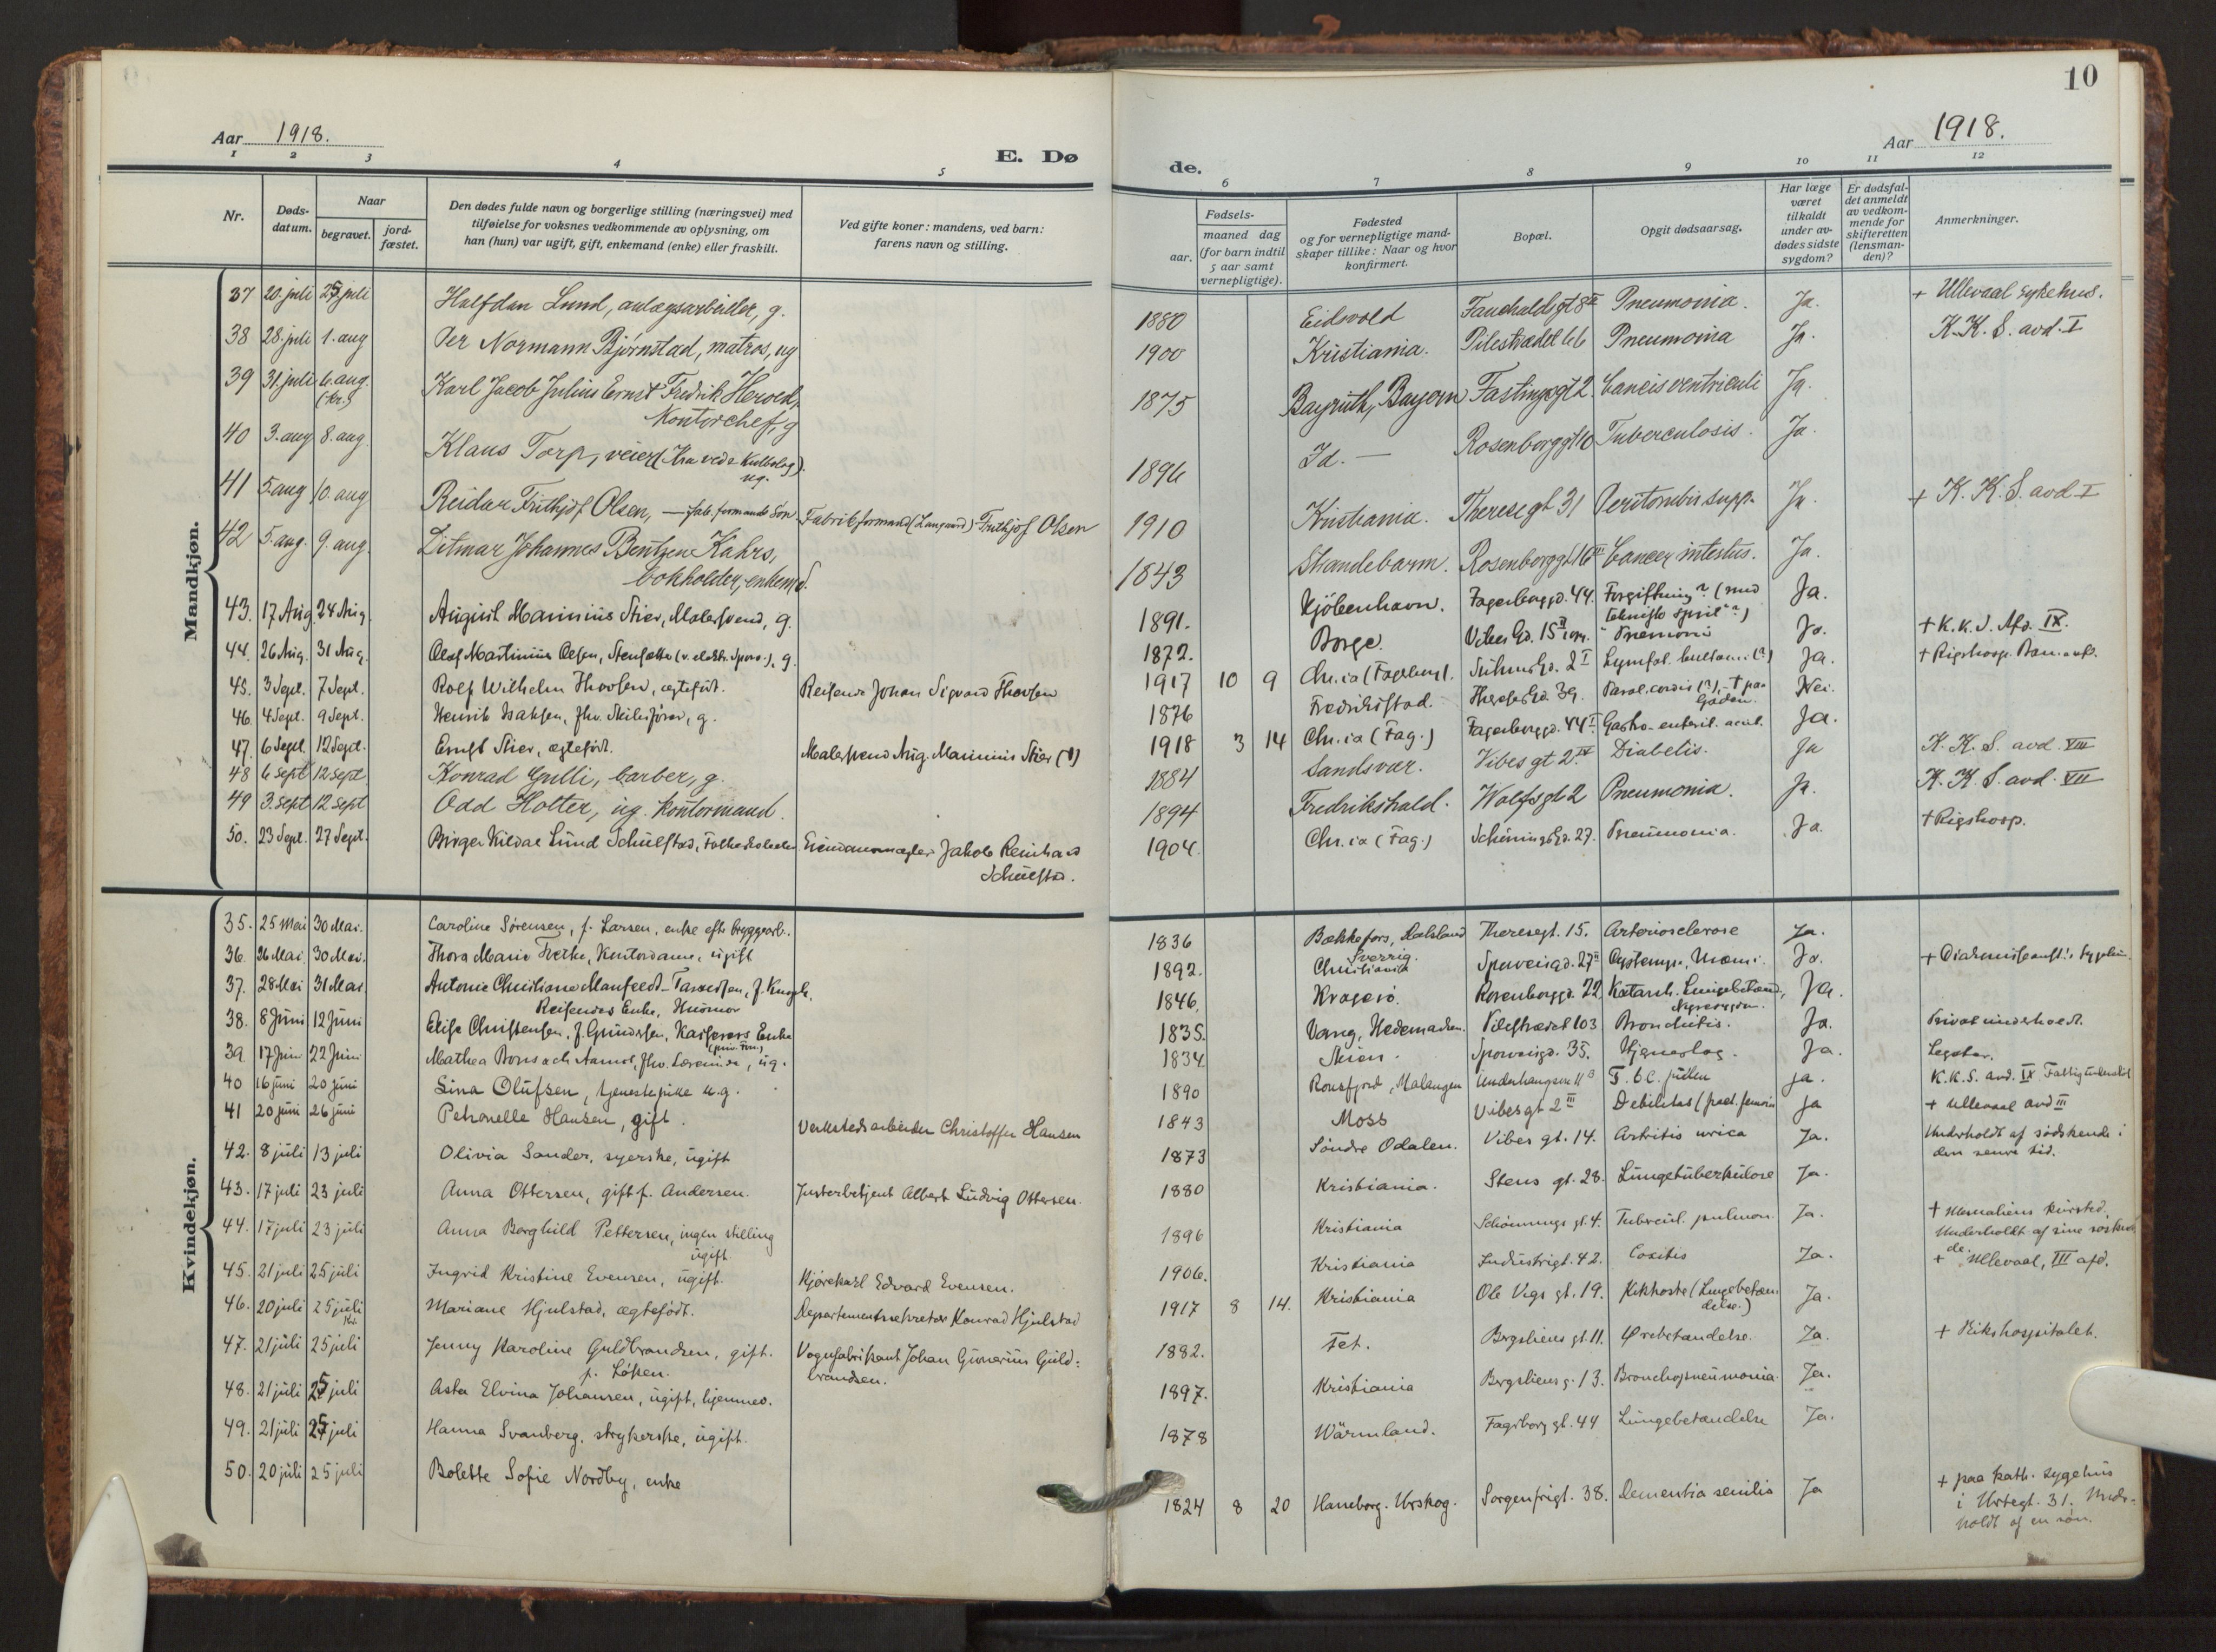 10
Aar 1918.
E. Dø
de.
Aar 1918.
1 2 3 4 5 6 7 8 9 10 11 12
Nr.
Døds-
datum.
Naar
begravet.
jord-
fæstet.
Den dødes fulde navn og borgerlige stilling (næringsvei) med
tilføielse for voksnes vedkommende av oplysning, om
han (hun) var ugift, gift, enkemand (enke) eller fraskilt.
Ved gifte koner: mandens, ved barn:
farens navn og stilling.
Fødsels-
aar.
maaned dag
(for barn indtil
5 aar samt
vernepligtige).
Fødested
og for vernepligtige mand-
skaper tillike: Naar og hvor
konfirmert.
Bopæl.
Opgit dødsaarsag.
Har læge
været
tilkaldt
under av-
dødes sidste
sygdom?
Er dødsfal-
det anmeldt
av vedkom-
mende for
skifteretten
(lensman-
den)?
Anmerkninger.
Mandkjøn.
37 20. juli 25 juli Halfdan Lund, anlægsarbeider, g. 1880 Eidsvold Fauchaldsgt 8 Pneumonia. Ja. + Ullevaal sykehus.
38 28. juli 1. aug Per Normann Bjørnstad, matros, ug 1900 Kristiania. Pilestrædet 66 Pneumonia Ja. K. K. S. avd. I
39 31. juli 6. aug. (kr.) Karl Jacob Julius Ernst Fredrik Herold,
Kontorchef, g 1875 Bayruth, Bayern Fastingsgt 2. ventriculi Ja.
40 3. aug 8. aug. Klaus Torp, veier (Kra ved & Kulbolag).
ug. 1896 Id. — Rosenborggt 10 Tuberculosis. Ja.
41 5. aug 10. aug Reidar Frithjof Olsen, — fab. formands søn Fabrikformand (Langaard) Frithjof Olsen 1910 Kristiania. Theresegt 31 Peritonitis supp. Ja. + K. K. S. avd I
42 5. aug. 9. aug. Ditmar Johannes Bentzen Kahrs,
bokholder, enkemd. 1843 Strandebarm. Rosenborggt 16 III Cancer intestin. Ja.
43. 17 Aug. 24 Aug. August Marinius Stier, Malersvend, g. 1891. Kjöbenhavn. Fagerborggd. 44. Forgiftning? (med
teknisk sprit"?) Ja.
44. 26 Aug. 31 Aug. Olaf Martinius Olsen, Stensætte (v. elektr. Sporv.), g. 1872. Borge. Vibes Gd. 15 II Pnemoni Ja. + K. K. S. Afd. IX.
45. 3 Sept. 7 Sept. Rolf Wilhelm Thorsen, ægtefödt. Reisende Johan Sigvard Thorsen 1917 10 9 Chr.ia (Fagerborg). Suhms Gd. 2 I Lymfat. (?) Ja. + Rigshosp. Barneafd.
46. 4 Sept. 9 Sept. Henrik Isaksen, fhv. Skibsförer, g. 1876 Fredrikstad. Theresegd. 39. Paral. cordis (?), + paa
Gaden. Nei.
47. 6 Sept. 12 Sept. Ernst Stier, ægtefödt. Malersvend Aug. Marinius Stier (†) 1918 3 14 Chr.ia (Fag.) Fagerborggd. 44 I Gastro-enterit. acut. Ja.
48 6 sept 12 sept Konrad Gulli, barber, g. 1884 Sandsvær. Vibesgt 2. IV Diabetis. Ja K. K. S. avd. VIII
49 3. sept 12 sept Odd Holter, ug. kontormand. 1894 Fredrikshald. Wolfsgt 2 Pneumonia. Ja. K. K. S. avd. VII
50. 23 Sept. 27 Sept. Birger Kildal Lund Schulstad, Folkeskoleelev Eiendomsmægler Jakob Reinhard
Schulstad. 1904. Chr.ia (Fag.) Schöningsgd. 27. Pneumonia. Ja. + Rigshosp.
Kvindekjøn.
35. 25 Mai 30 Mai. Caroline Sørensen, f. Larsen, enke efter bryggearb. 1836 Bækkefors, Dalsland
Sverrig. Theresegt. 15. Arteriosclerose Ja.
36. 26 Mai. 30 Mai. Thora Marie Trethe, Kontordame, ugift 1892. Christiania Sporveisgd. 27 II Uræmi. Ja.
37. 28 Mai 31 Mai Antonie Christiane Manfeldt-Tanssen, f.
Reisendes Enke, Husmor 1846. Kragerö. Rosenborggd. 22. Katarrh. Lungebetænd., Ja.
Nyresygdom.
38. 8 Juni 12 Juni Elise Christensen, f. Gundersen, Kasserers Enke 1835. Vang, Hedemarken. Pilestrædet 103 Bronchitis. Ja. Privat underholdt.
39 17 Juni 22 Juni Mathea Aamot, fhv. Lærerinde, ug. 1834 Skien. Sporveisgd. 35. Hjerneslag. Ja. Legater.
40 16 juni 20 juni Lina Olufsen, tjenestepike u.g. 1890 Rossfjord, Malangen Underhaugsvn 11 B T.b.c. pulm ja. K.K.S. avd. IX
41 20 juni 26 juni Petronelle Hansen, gift. Verkstedsarbeider Christoffer Hansen 1843 Moss Vibesgt 2 III Debilitas ja + Ullevaal avd III
42. 8 juli 13 juli Olivia Sander, syerske, ugift 1873 Söndre Odalen. Vibes gt. 14. Artritis urica Ja. Underholdt af sødskende i
den senere tid.
43. 17 juli 23 juli Anna Ottersen, gift f. Andersen. Justerbetjent Albert Ludvig Ottersen. 1880 Kristiania. Stens gt. 28. Lungetuberkulose Ja.
44. 17 juli 23 juli Anna Borghild Pettersen, ingen stilling
ugift. 1896 Kristiania Schönnings gt. 4. Tubercul. pulmon. Ja. + kursted.
Underholdt af sine søsken
de.
45. 21 juli 25 juli Ingrid Kristine Evensen, ugift. Kjørekarl Edvard Evensen. 1906. Kristiania Industrigt. 42. Coxitis Ja. + Ullevaal, III afd.
46. 20 juli 25 juli Kr. Mariane Hjulstad, ægtefödt. Departementssekretær Konrad Hjulstad 1917 8 14. Kristiania Ole Vigs gt. 19. Kikhoste (Lungebetæn
delse.) Ja.
47. 21 juli 25 juli Jenny Karoline Guldbrandsen, gift.
f. Löken. Vognfabrikant Johan Gunerius Guld=
brandsen. 1882. Fet. Bergsliens gt. 11. Ørebetændelse. Ja. + Rikshospitalet.
48. 21 juli 25 juli Asta Elvina Johansen, ugift, hjemmev. 1897. Kristiania Bergsliens g. 13. Bronchopneumonia. Ja.
49. 21 juli 25 juli Hanna Svanberg. strykerske, ugift. 1878 Wärmland. Fagerborg gt. 44 Lungebetændelse Ja.
50. 20 juli 25 juli Bolette Sofie Nordby, enke 1824 8 20 Haneborg. Urskog. Sorgenfrigt. 38. Dementia senilis Ja + paa kath. sygehus
i Urtegt. 31. Under=
holdt af en søn.